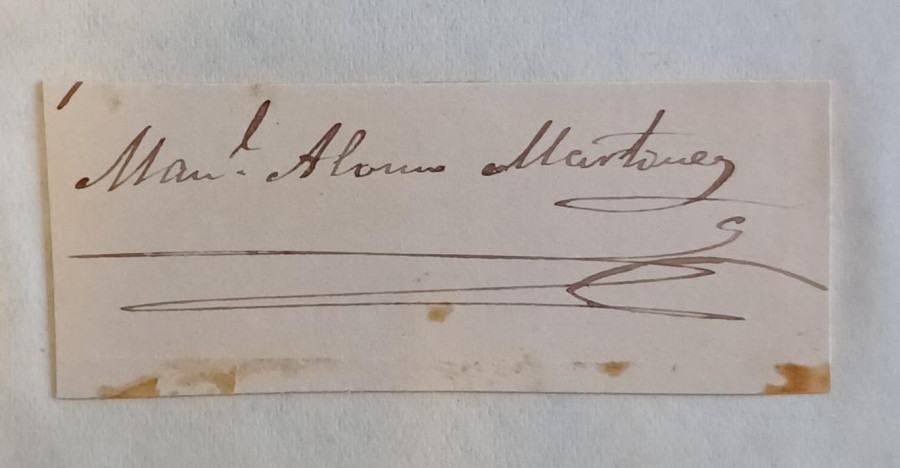 Manl. Alonso Martinez